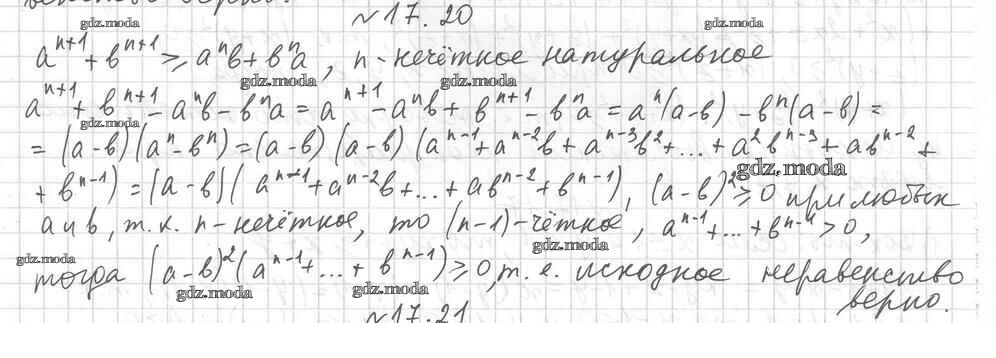 №17.20
a^{n+1} + b^{n+1} ≥ a^n b + b^n a, n - нечётное натуральное
a^{n+1} + b^{n+1} - a^n b - b^n a = a^{n+1} - a^n b + b^{n+1} - b^n a = a^n(a-b) - b^n(a-b) =
= (a-b)(a^n - b^n) = (a-b)(a-b)(a^{n-1} + a^{n-2}b + a^{n-3}b^2 + ... + a^2b^{n-3} + ab^{n-2} +
+ b^{n-1}) = (a-b)(a^{n-1} + a^{n-2}b + ... + ab^{n-2} + b^{n-1}), (a-b)^2 ≥ 0 при любых
a и b, т.к. n - нечётное, то (n-1) - чётное, a^{n-1} + ... + b^{n-1} > 0,
тогда (a-b)^2(a^{n-1} + ... + b^{n-1}) ≥ 0, т.е. исходное неравенство
верно.
№17.21
gdz.moda
gdz.moda
gdz.moda
gdz.moda
gdz.moda
gdz.moda
gdz.moda
gdz.moda
gdz.moda
gdz.moda